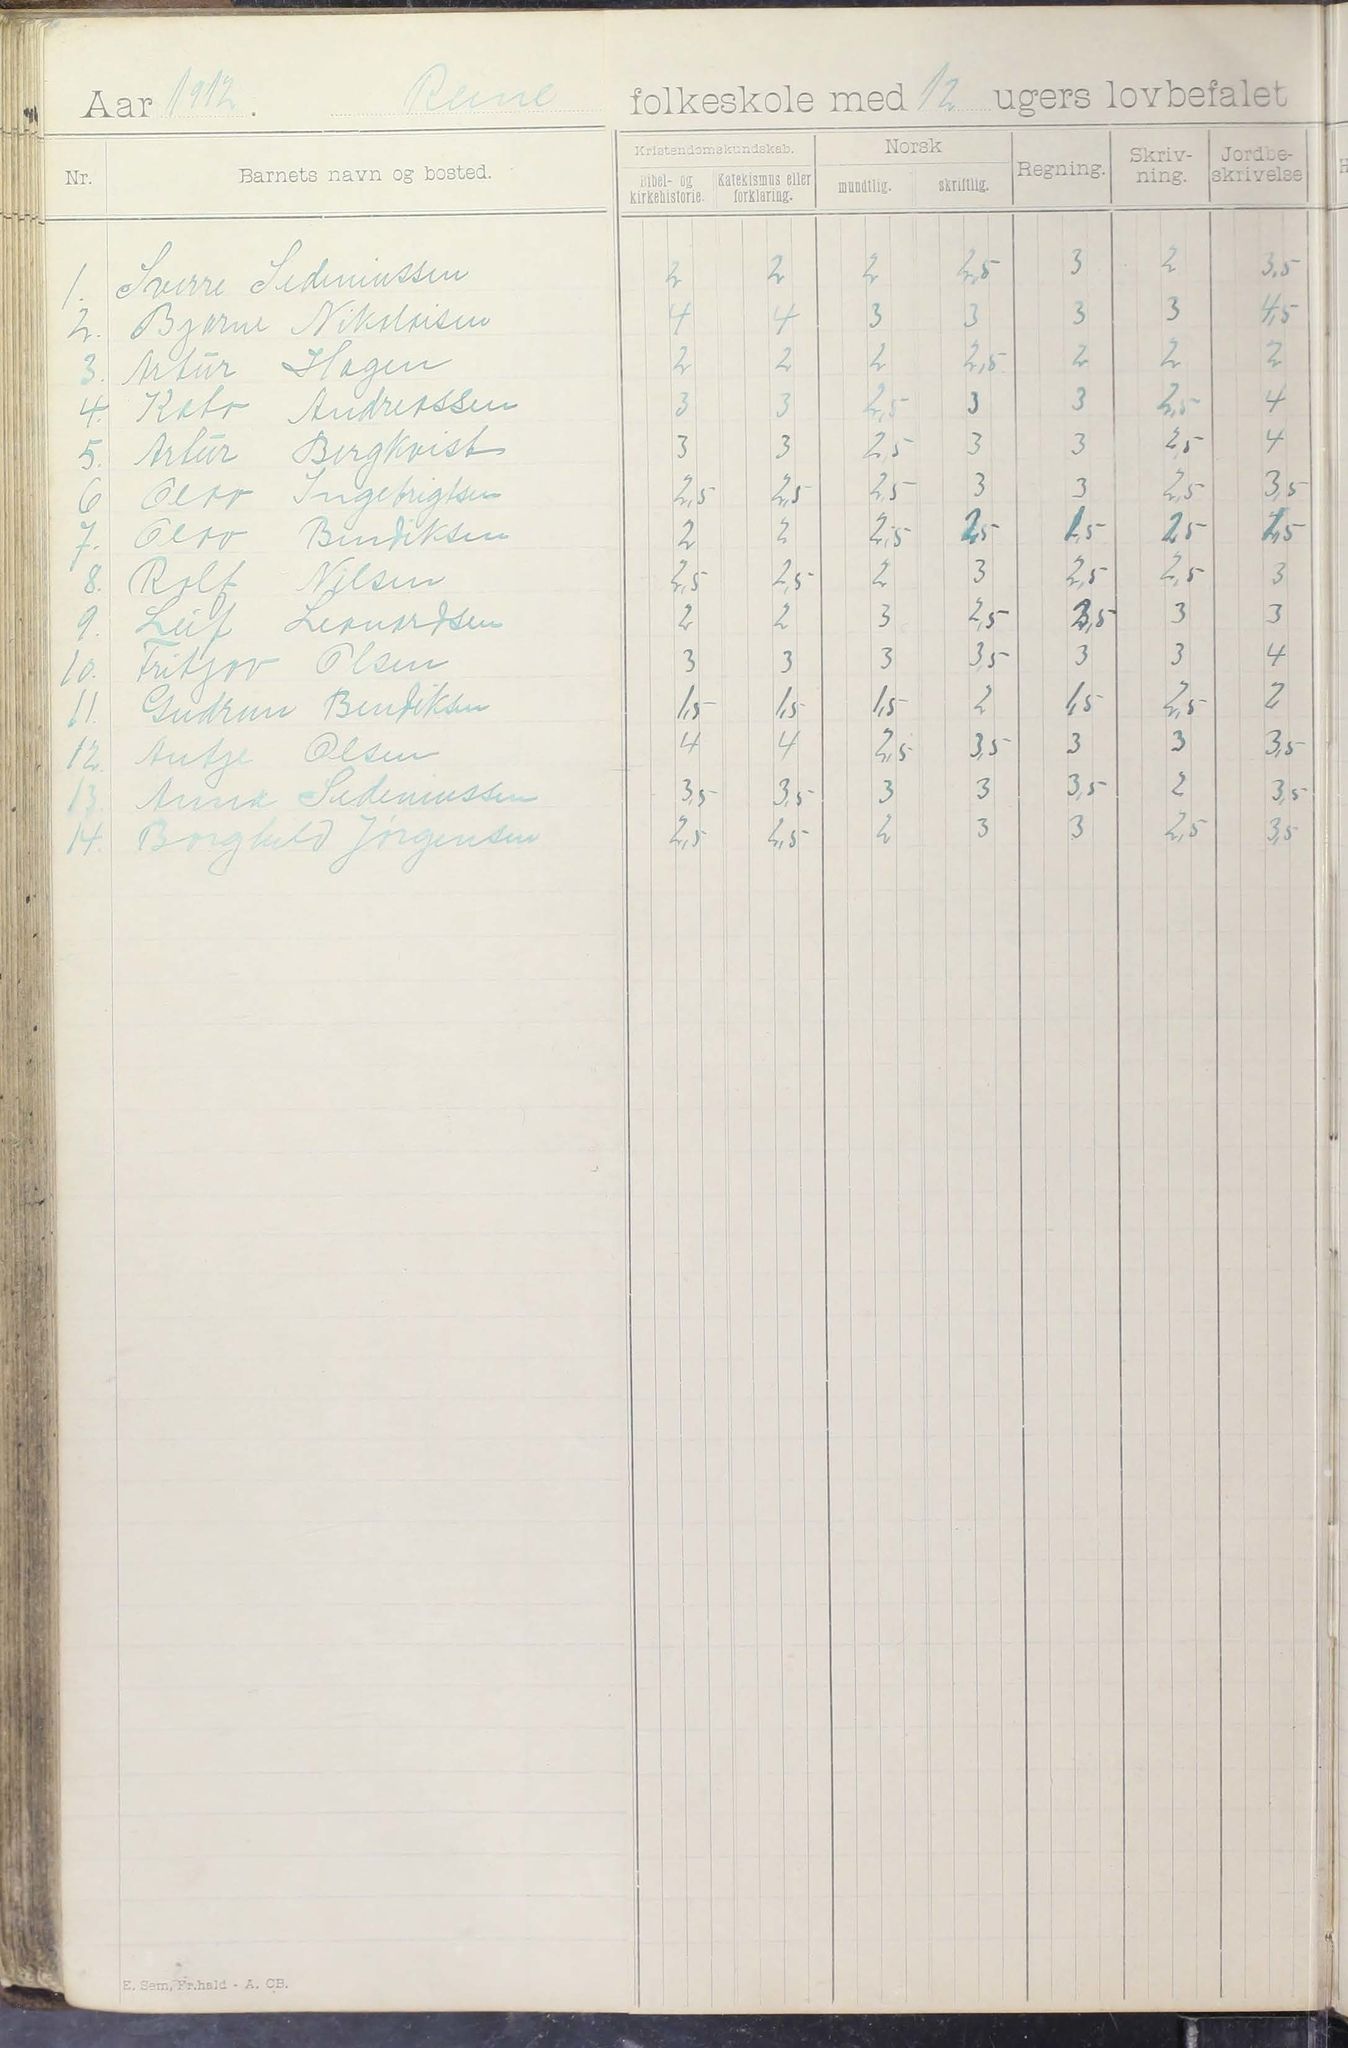 Aar 1912. Reine folkeskole med 12 ugers lovbefalet
Nr. Barnets navn og bosted. Kristendomskundskab. Bibel- og kirkehistorie. Katekismus eller forklaring. Norsk mundtlig. skriftlig. Regning. Skriv-ning. Jordbe-skrivelse
1. Sverre Sedeniussen 2 2 2 2,5 3 2 3,5
2. Bjarne Nikolaisen 4 4 3 3 3 3 4,5
3. Artur Hagen 2 2 2 2,5 2 2 2
4. Kato Andreassen 3 3 2,5 3 3 2,5 4
5. Artur Bergkvist 3 3 2,5 3 3 2,5 4
6 Olav Ingebrigtsen 2,5 2,5 2,5 3 3 2,5 3,5
7. Olav Bendiksen 2 2 2,5 2,5 1,5 2,5 1,5
8. Rolf Nilsen 2,5 2,5 2 3 2,5 2,5 3
9. Leif Leonardsen 2 2 3 2,5 3,5 3 3
10. Fritjov Olsen 3 3 3 3,5 3 3 4
11. Gudrun Bendiksen 1,5 1,5 1,5 2 1,5 2,5 2
12. Antje Olsen 4 4 2,5 3,5 3 3 3,5
13. Anna Sedeniussen 3,5 3,5 3 3 3,5 2 3,5
14. Borghild Jørgensen 2,5 2,5 2 3 3 2,5 3,5
E. Sem, Fr.hald - A. CB.